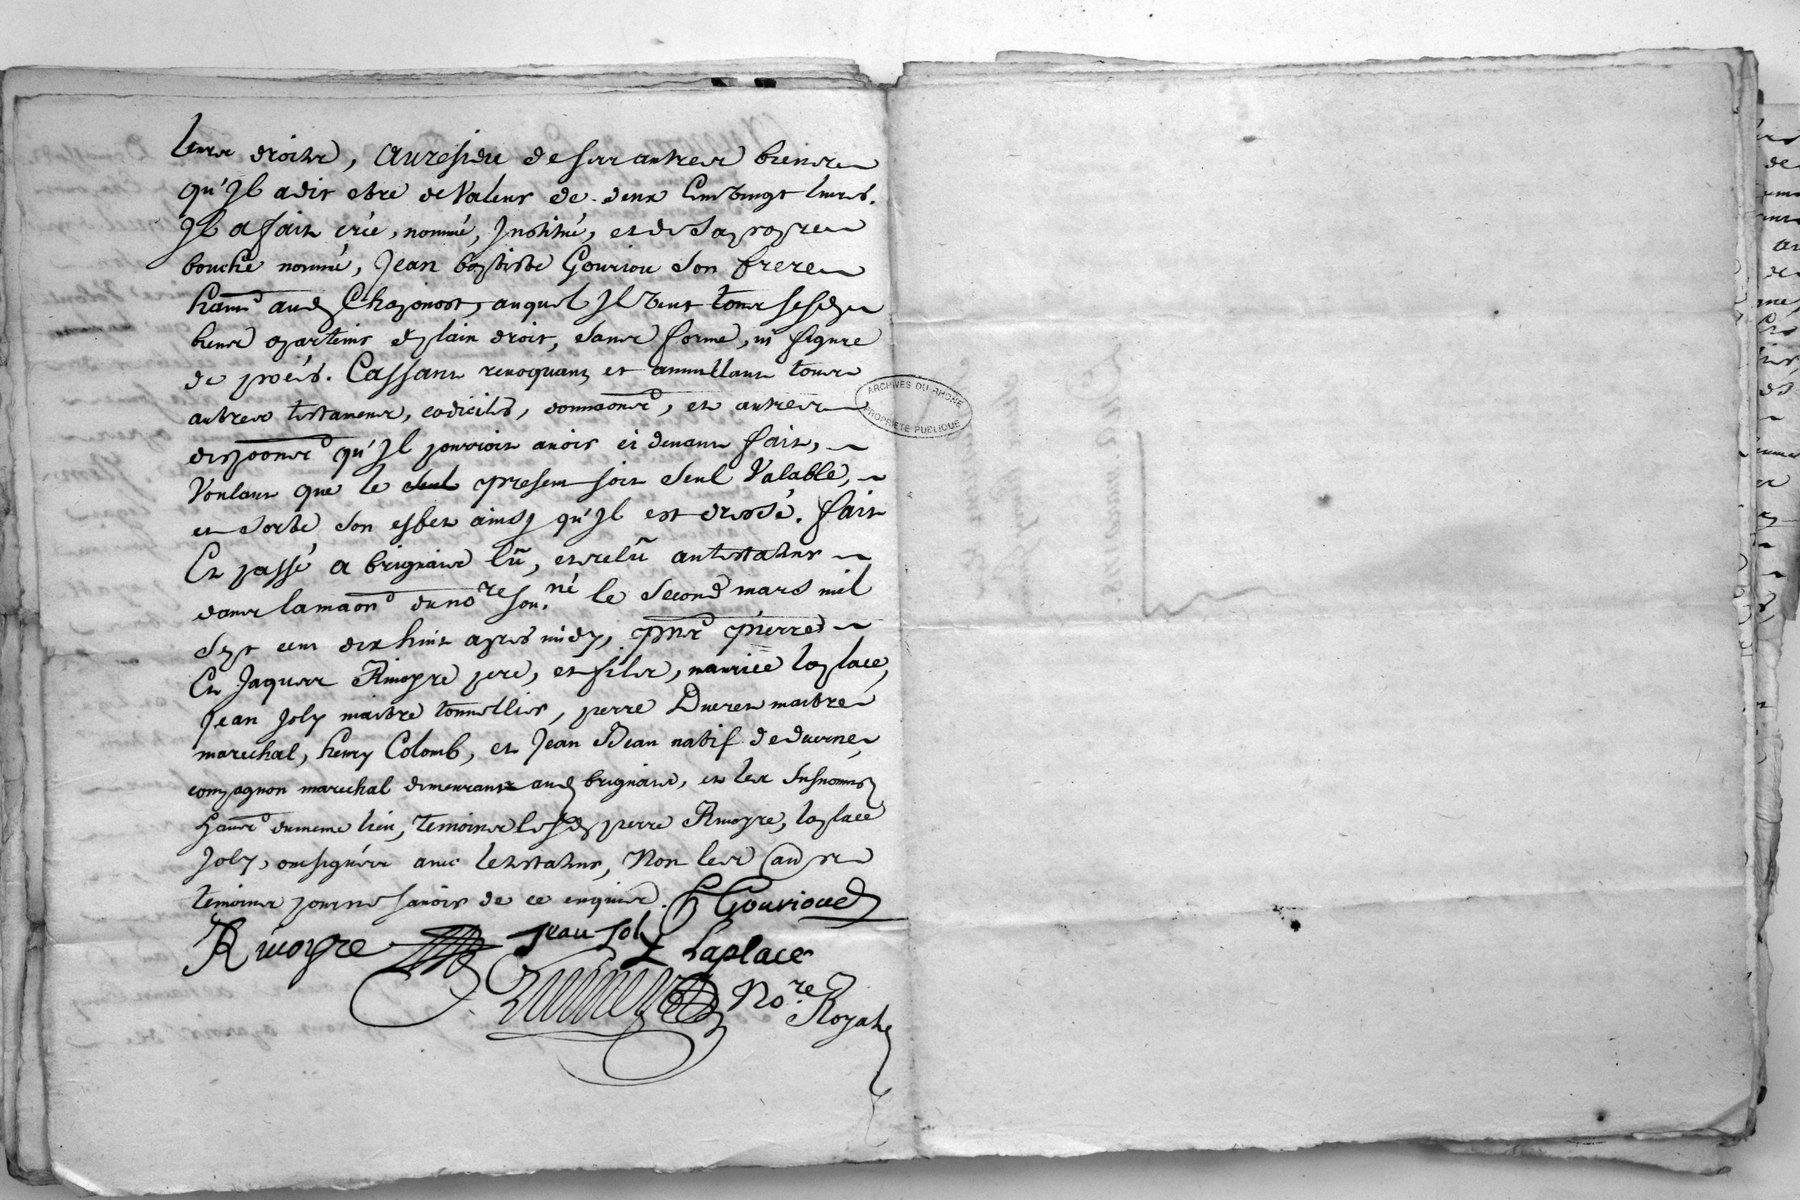 leurs droits, au residu de ses autres biens
qu'Jl a dit etre de Valeur de deux Cent vingt livres.
Jl a fait créé, nommé, Jnstitué, et de sa propre
bouche nommé, Jean baptiste Gouriou son frere
hant aud Chaponost, auquel Jl veut tous sesd
biens apartenir de plain droit, sans forme, ni figure
de procés. Cassant revoquant et annullant tous
autres testamens, codiciles, donnaons, et autres
dispoons qu'Jl pourroit avoir ci devant fait,
Voulant que le seul present soit seul Valable,
et sorte son effet ainsy qu'Jl est dressé. fait
Et passé a brignais lû, et relû au testateur
dans la maon du nore souné le second mars mil
sept cent dix huit apres midy, pnt pierre
Et Jaques Rivoyre pere, et fils, maurice laplace,
Jean Joly maitre tonnellier, pierre Ducret maitre
marechal, henry Colomb, et Jean Bean natif de
compagnon marechal demeurant aud brignais, et les susnommés
hants du meme lieu, temoins lesd pierre Rivoyre, laplace
Joly, ont signés avec le testateur, Non les autres
temoins pour ne savoir de ce enquis. Gourioud
Rivoyre Jean Joly Laplace
Nore Royal
ARCHIVES DU RHONE
PROPRIETE PUBLIQUE